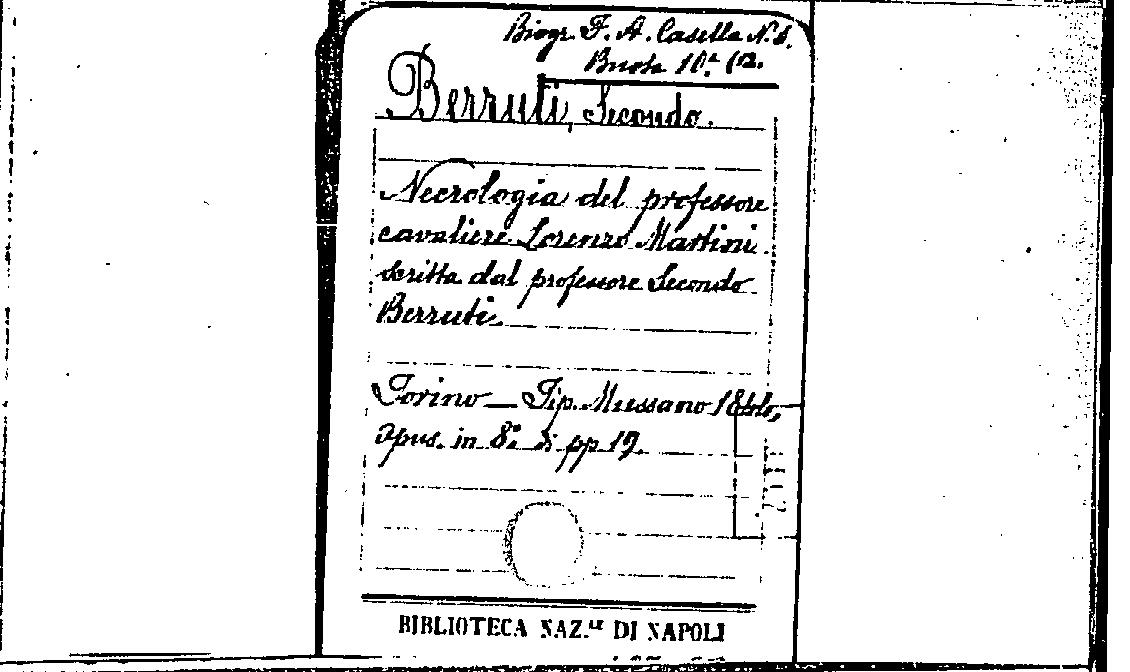 Biogr. F. A. Casella N. 1.
Busta 10.ª (12.
Berruti, Secondo.
Necrologia del professore
cavaliere Lorenzo Martini
scritta dal professore Secondo
Berruti.
Torino — Tip. Mussano 1844,
opus. in 8.° di pp 19.
BIBLIOTECA NAZ.LE DI NAPOLI